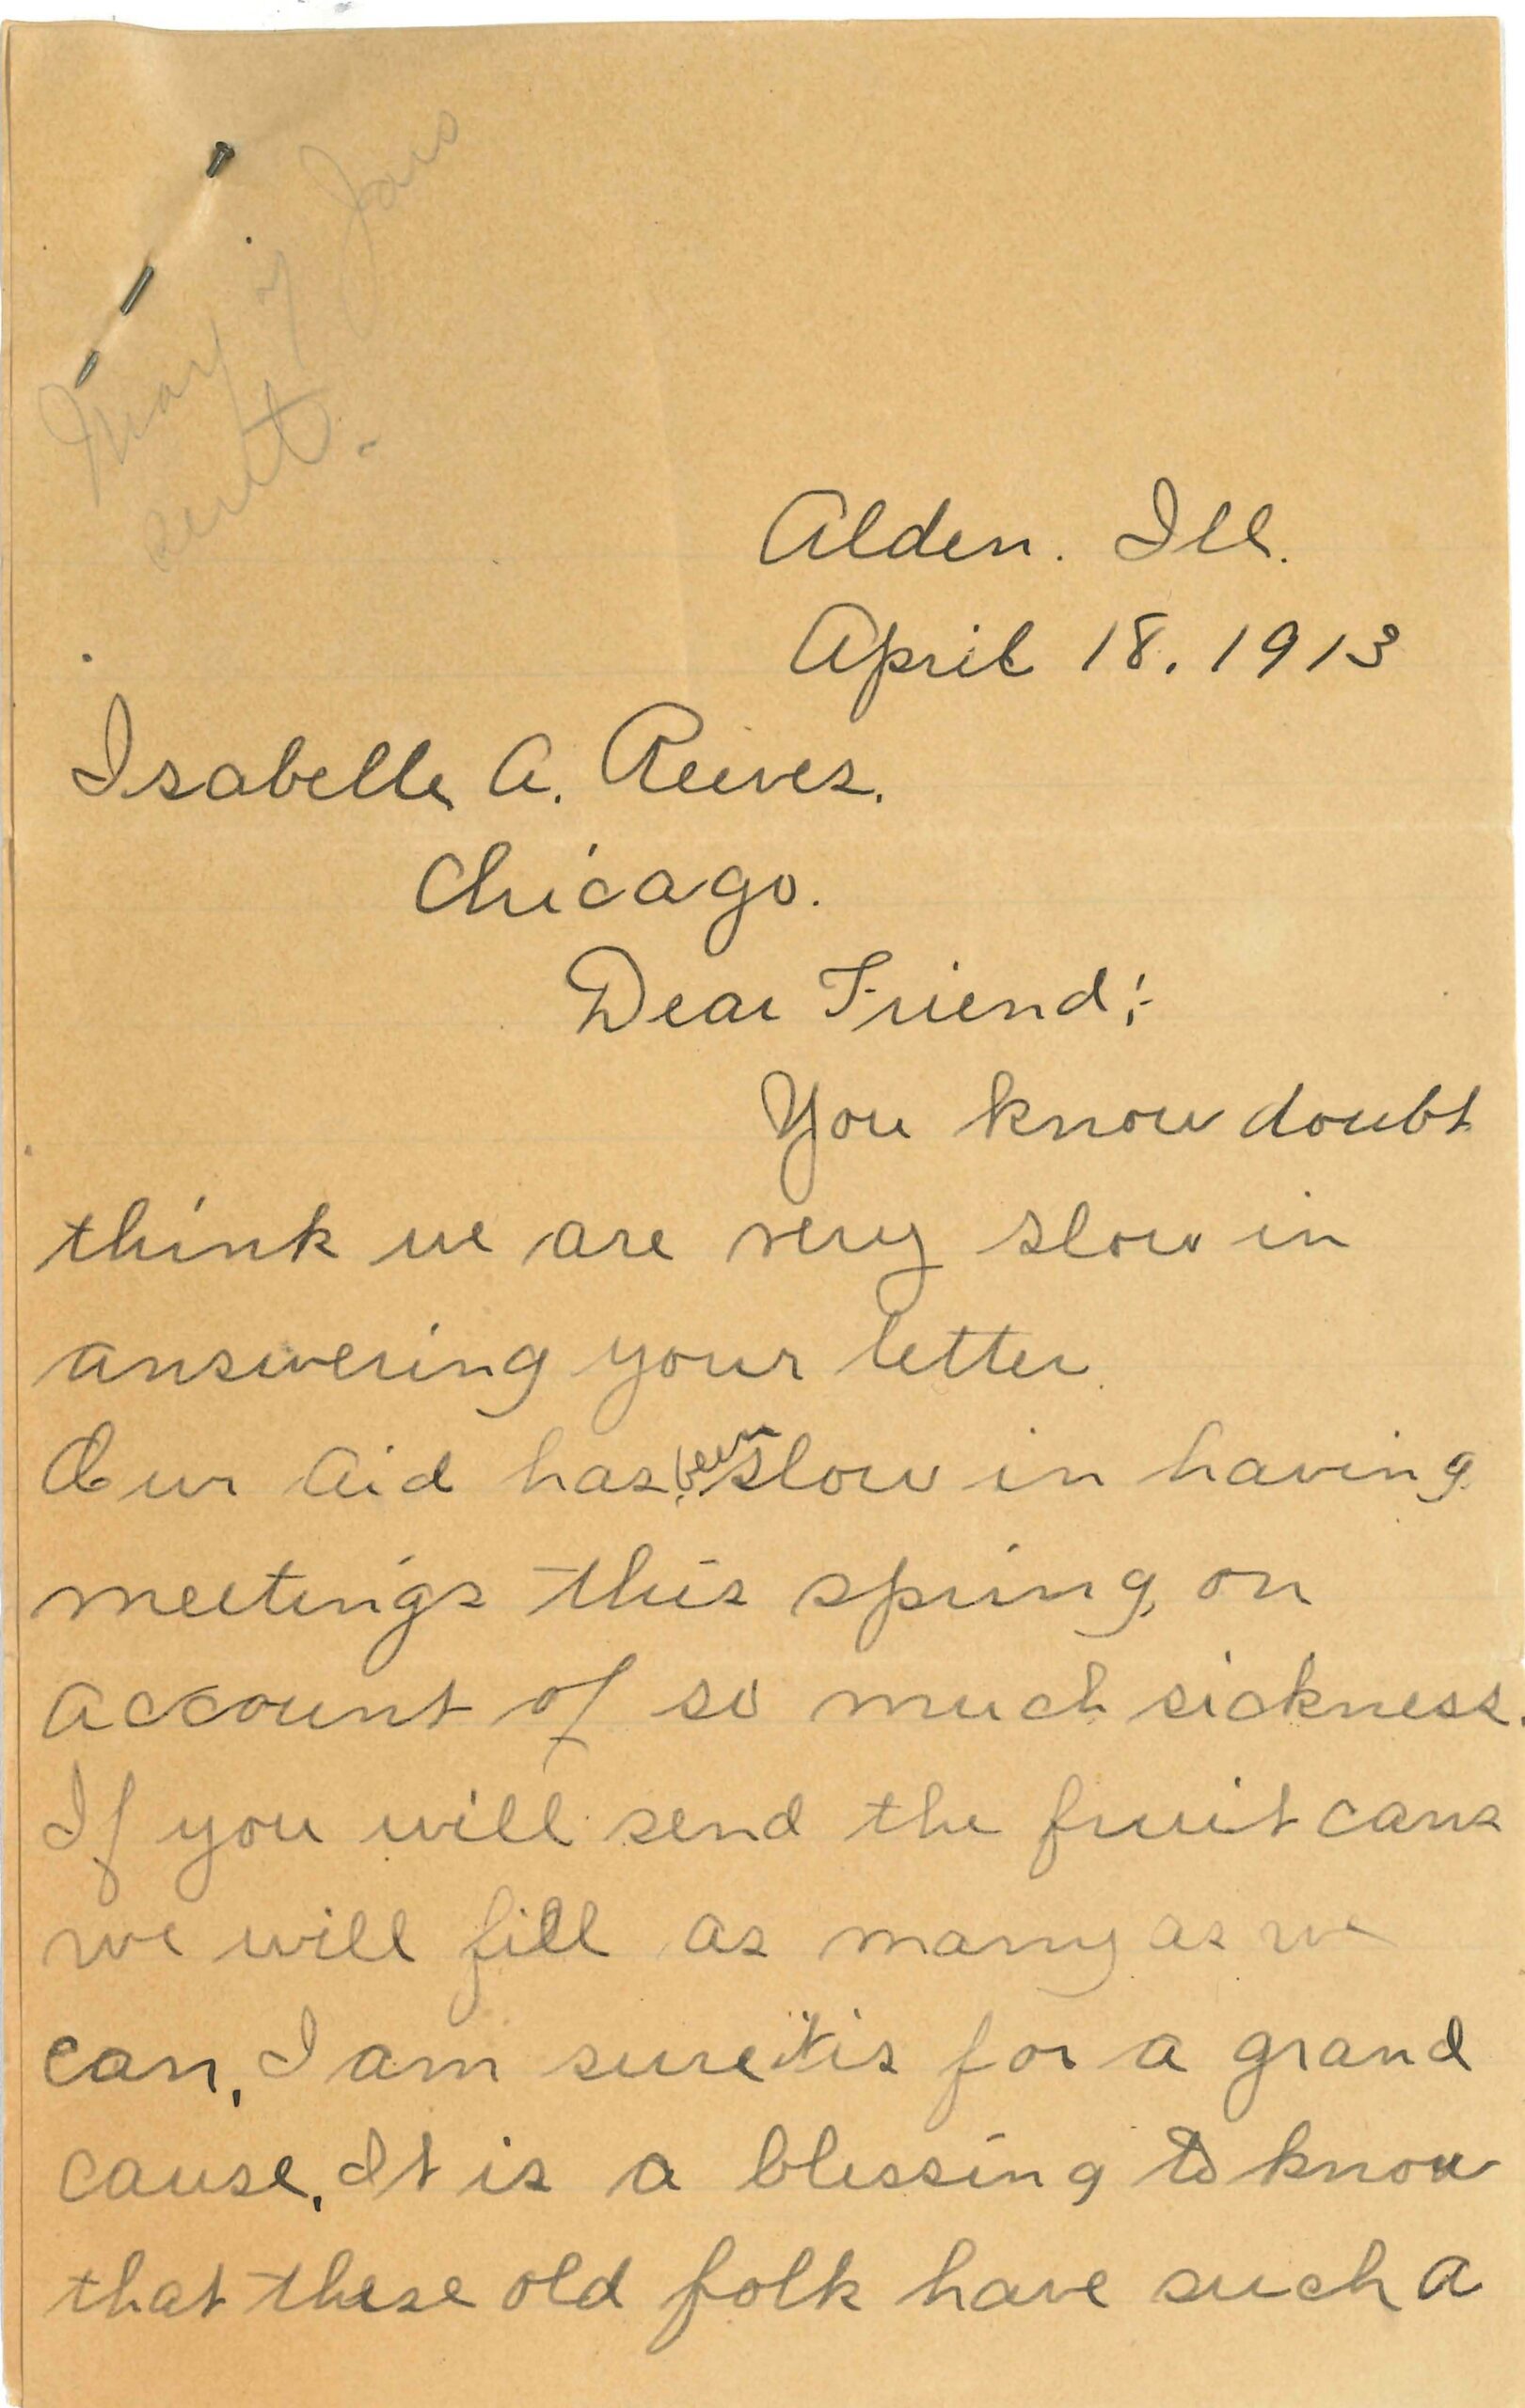 May 7 Jars
sent.
Alden. Ill.
April 18. 1913
Isabelle A. Reeves.
Chicago.
Dear Friend:-
You know doubt
think we are very slow in
answering your letter.
Our Aid has been slow in having
meetings this spring, on
account of so much sickness.
If you will send the fruit cans
we will fill as many as we
can, I am sure it is for a grand
cause. It is a blessing to know
that these old folk have such a